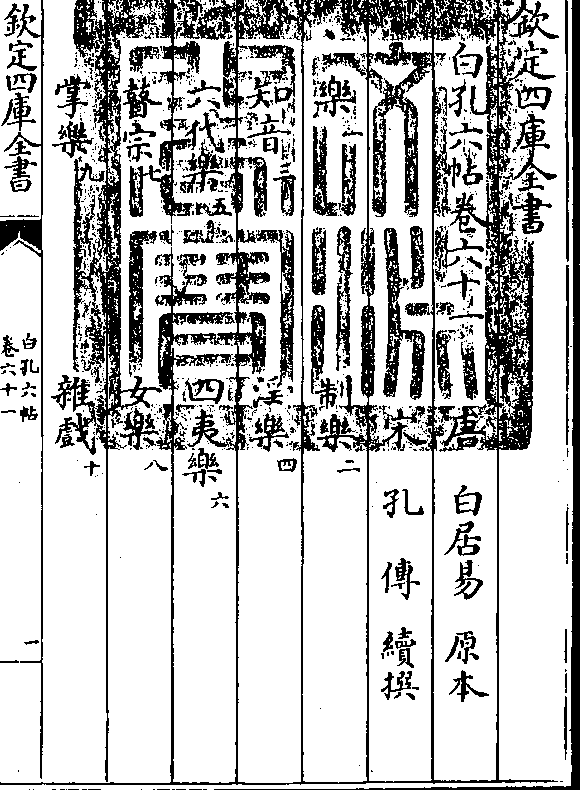 欽定四庫全書
白孔六帖卷六十一
唐 白居易 原本
宋 孔傳 續撰
樂一 制樂二
知音三 淫樂四
六代樂五 四夷樂六
瞽宗七 女樂八
掌樂九 雜戲十
欽定四庫全書
白孔六帖
卷六十一
一